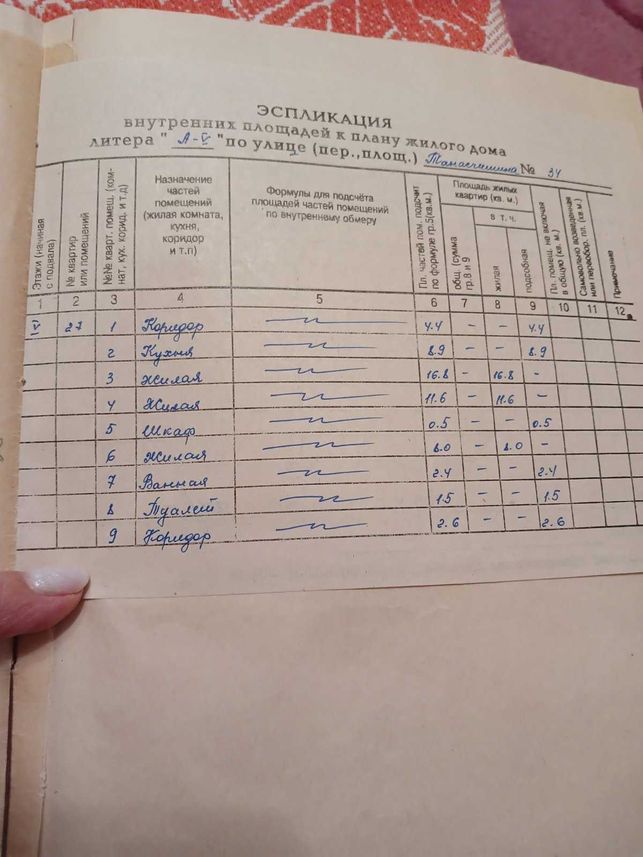 ЭСПЛИКАЦИЯ
внутренних площадей к плану жилого дома
литера "А-V" по улице (пер.,площ.) № 34
Этажи (начиная с подвала)
№ квартир или помещений
№№ кварт. помещ. (комнат, кух. корид. и т.д)
Назначение
частей
помещений
(жилая комната,
кухня,
коридор
и т.п)
Формулы для подсчёта
площадей частей помещений
по внутреннему обмеру
Пл. частей пом. подсчит по формуле гр.5(кв.м.)
Площадь жилых
квартир (кв. м.)
общ. (сумма гр.8 и 9
в т. ч.
жилая
подсобная
Пл. помещ. не включая в общую (кв. м.)
Самовольно возведенная или переобор. пл. (кв. м.)
Примечание
1 2 3 4 5 6 7 8 9 10 11 12
IV 27 1 Коридор —〃— 4.4 - - 4.4
2 Кухня —〃— 8.9 - - 8.9
3 Жилая —〃— 16.8 - 16.8 -
4 Жилая —〃— 11.6 - 11.6 -
5 Шкаф —〃— 0.5 - - 0.5
6 Жилая —〃— 8.0 - 8.0 -
7 Ванная —〃— 2.4 - - 2.4
8 Туалет —〃— 1.5 - - 1.5
9 Коридор —〃— 2.6 - - 2.6